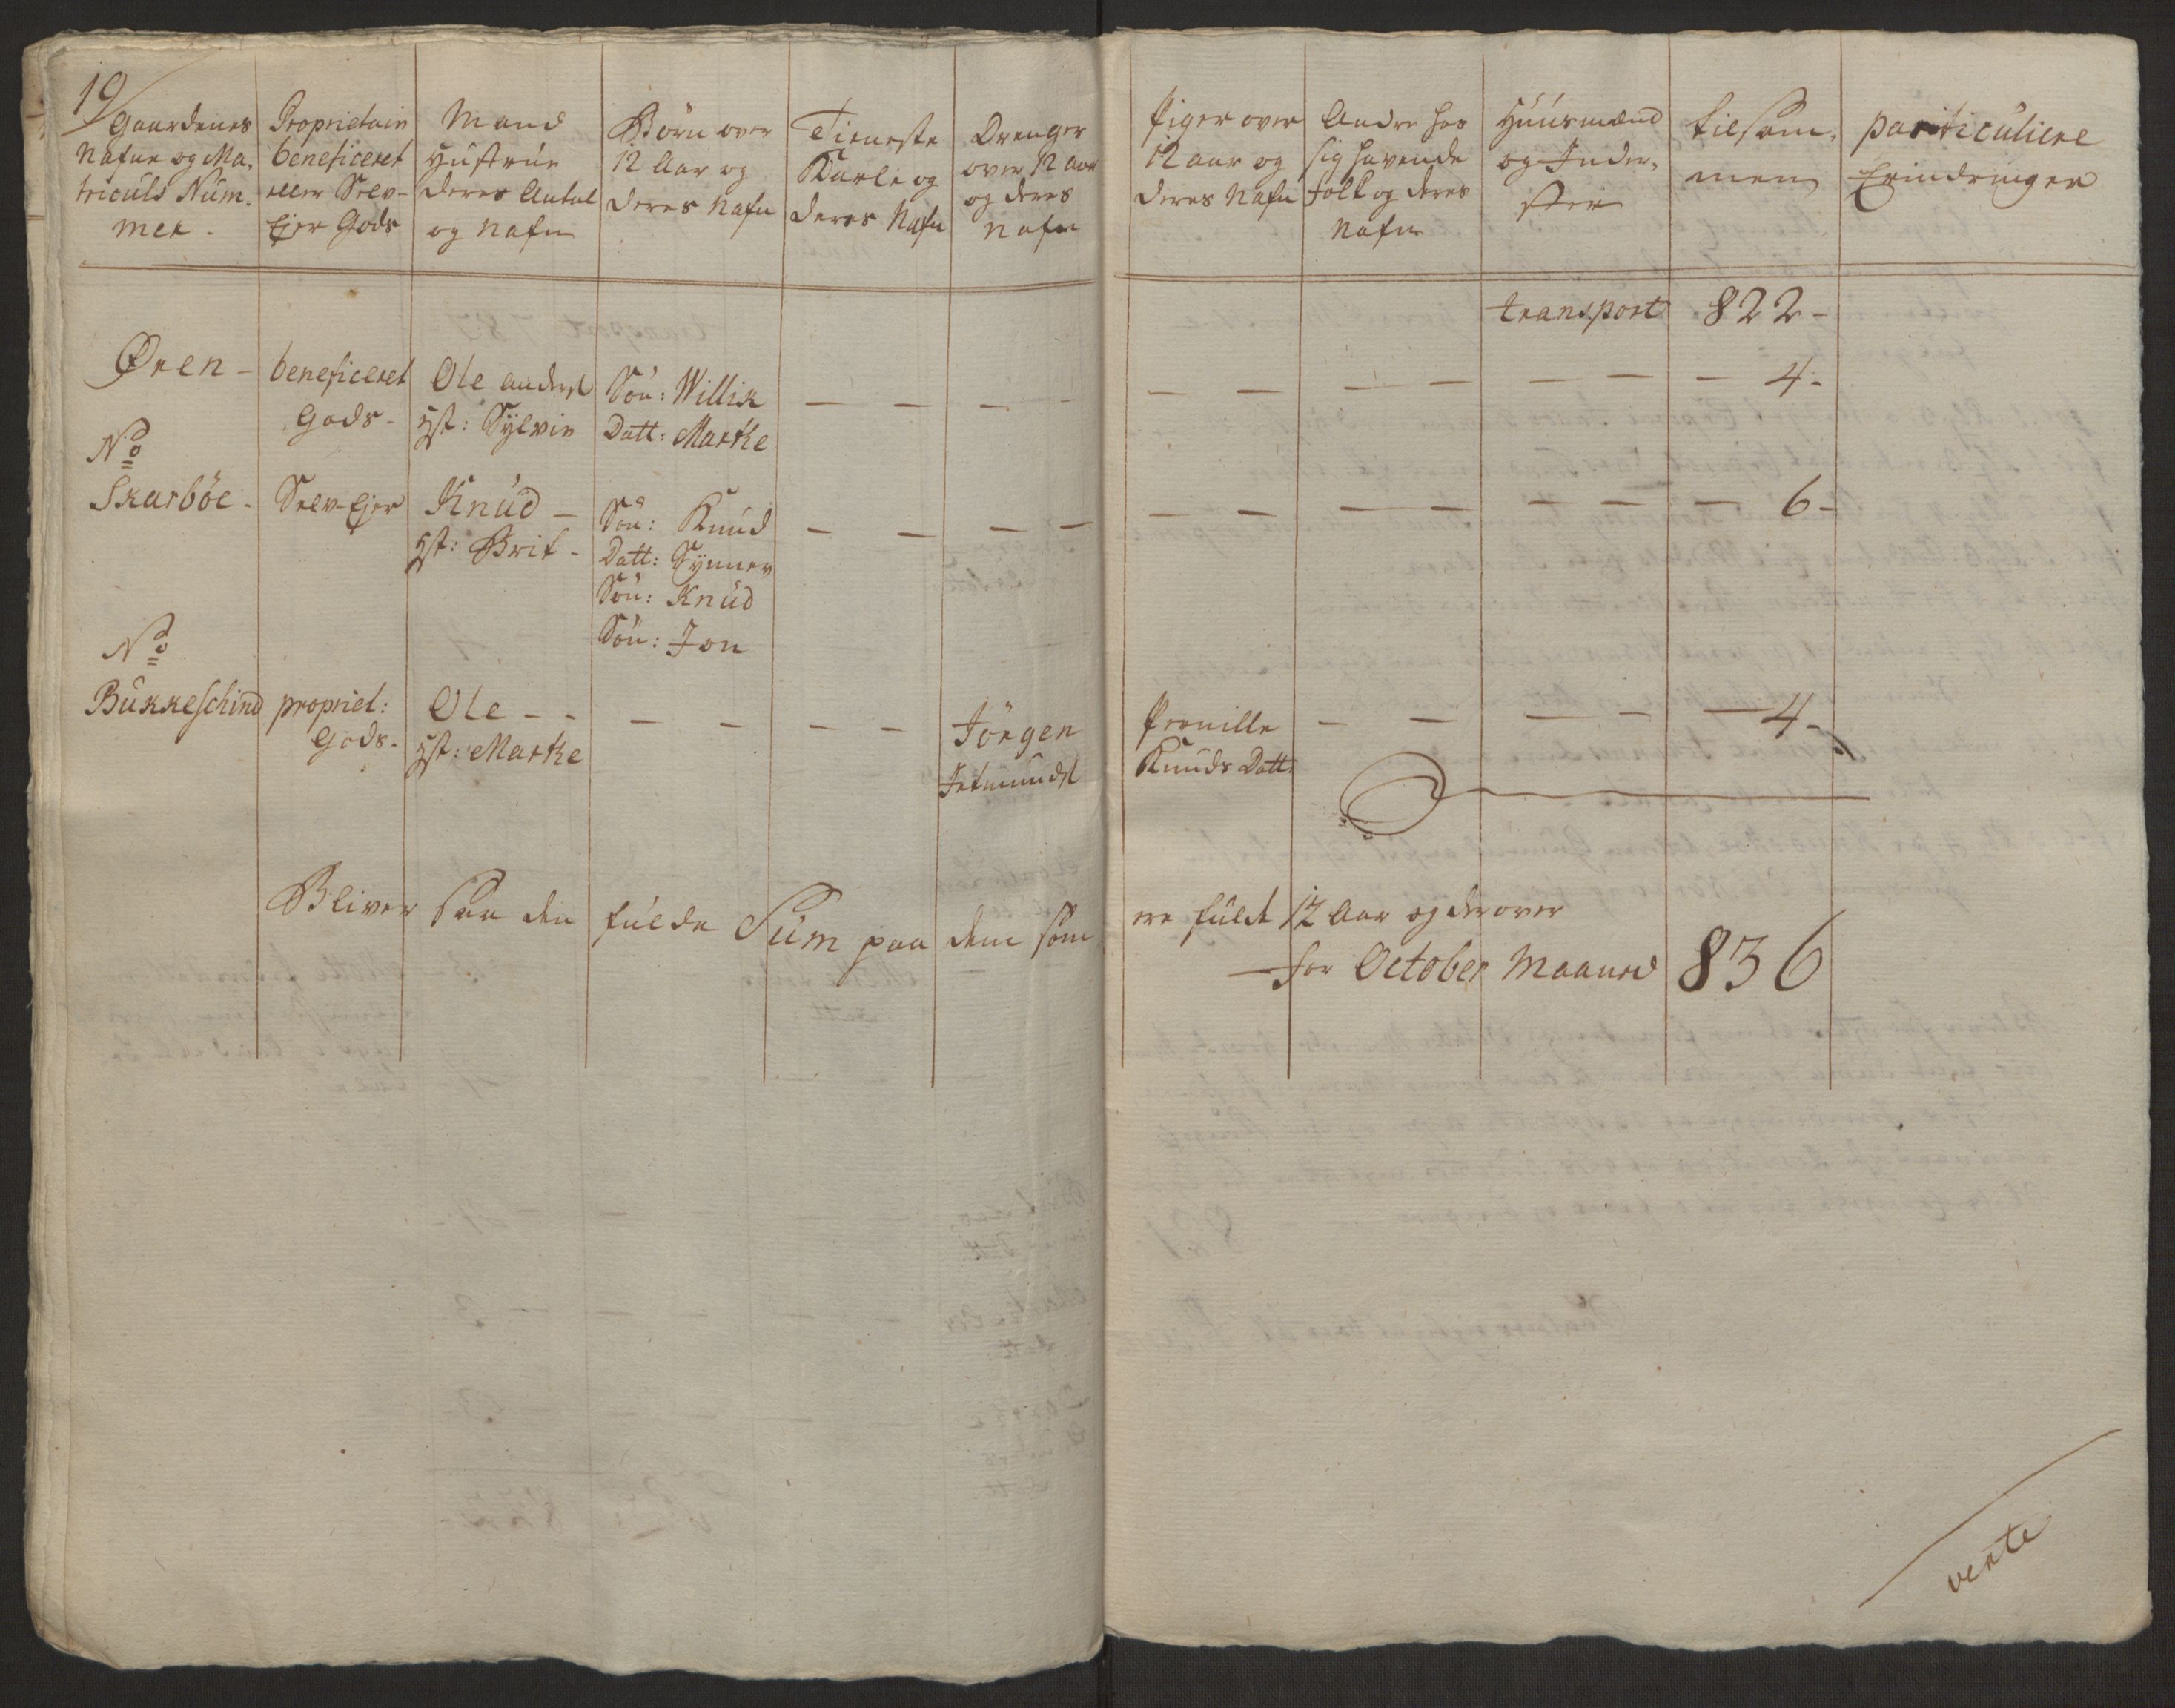 19
Gaardenes
Nafne og Ma,
triculs Num,
mer -
Proprietair
beneficeret
eller Selv-
Ejer Gods
Mand
Hustrue
deres Antal
og nafn
Börn over
12 Aar og
deres Nafn
Tieneste
Karle og
deres Nafn
Drenger
over 12 aar
og deres
nafn
Piger over
12 aar og
deres Nafn
Andre hos
sig havende
Folk og deres
Nafn
Huusmænd
og Inder,
ster
tilsam,
men
particuliere
Erindringer
transport 822-
Øren - beneficeret Ole anders Sön: Willik — — — — — — — — — — — 4-
Gods - Hst: Sylvie Datt: Marthe
No
Skarböe - Selv-Ejer Knud - Sön: Knud — — — — — — — — — — — 6-
Hst: Brit - Datt: Synnev
Sön: Knud
Sön: Jon
No
Bukkeschind propriet: Ole - - — — — — Jörgen Pernille — — — — — 4-
Gods - Hst: Marthe Jetmunds Knuds Datt:
Bliver saa den fulde Sum paa dem som ere fuldt 12 Aar og derover
— for October Maaned 836
verte